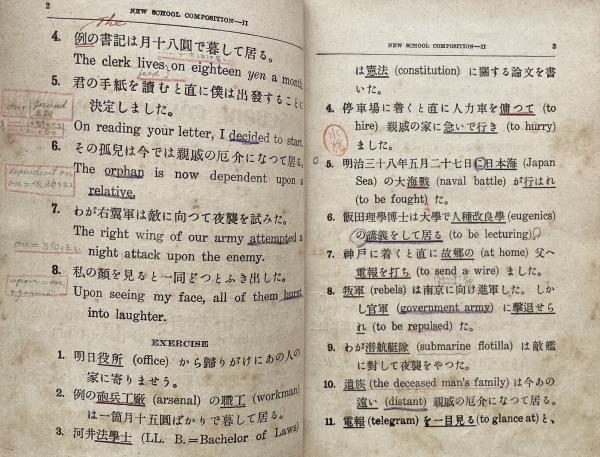 2
NEW SCHOOL COMPOSITION—II
The
4. 例の書記は月十八圓で暮して居る。
The clerk lives on eighteen yen a month.
5. 君の手紙を讀むと直に僕は出發することに
決定しました。
On reading your letter, I decided to start.
6. その孤兒は今では親戚の厄介になつて居る。
The orphan is now dependent upon a
relative.
7. わが右翼軍は敵に向つて夜襲を試みた。
The right wing of our army attempted a
night attack upon the enemy.
8. 私の顏を見ると一同どつとふき出した。
Upon seeing my face, all of them burst
into laughter.
EXERCISE
1. 明日役所 (office) から歸りがけにあの人の
家に寄りませう。
2. 例の砲兵工廠 (arsenal) の職工 (workman)
は一箇月十五圓ばかりで暮して居る。
3. 河井法學士 (LL. B.=Bachelor of Laws)
dependent on
NEW SCHOOL COMPOSITION—II
3
は憲法 (constitution) に關する論文を書
いた。
4. 停車場に着くと直に人力車を傭つて (to
hire) 親戚の家に急いで行き (to hurry)
ました。
5. 明治三十八年五月二十七日に日本海 (Japan
Sea) の大海戰 (naval battle) が行はれ
(to be fought) た。
6. 飯田理學博士は大學で人種改良學 (eugenics)
の講義をして居る (to be lecturing)。
7. 神戸に着くと直に故鄕の (at home) 父へ
電報を打ち (to send a wire) ました。
8. 叛軍 (rebels) は南京に向け進軍した。 しか
し官軍 (government army) に擊退せら
れ (to be repulsed) た。
9. わが潜航艇隊 (submarine flotilla) は敵艦
に對して夜襲をやつた。
10. 遺族 (the deceased man's family) は今あの
遠い (distant) 親戚の厄介になつて居る。
11. 電報 (telegram) を一目見る (to glance at) と、